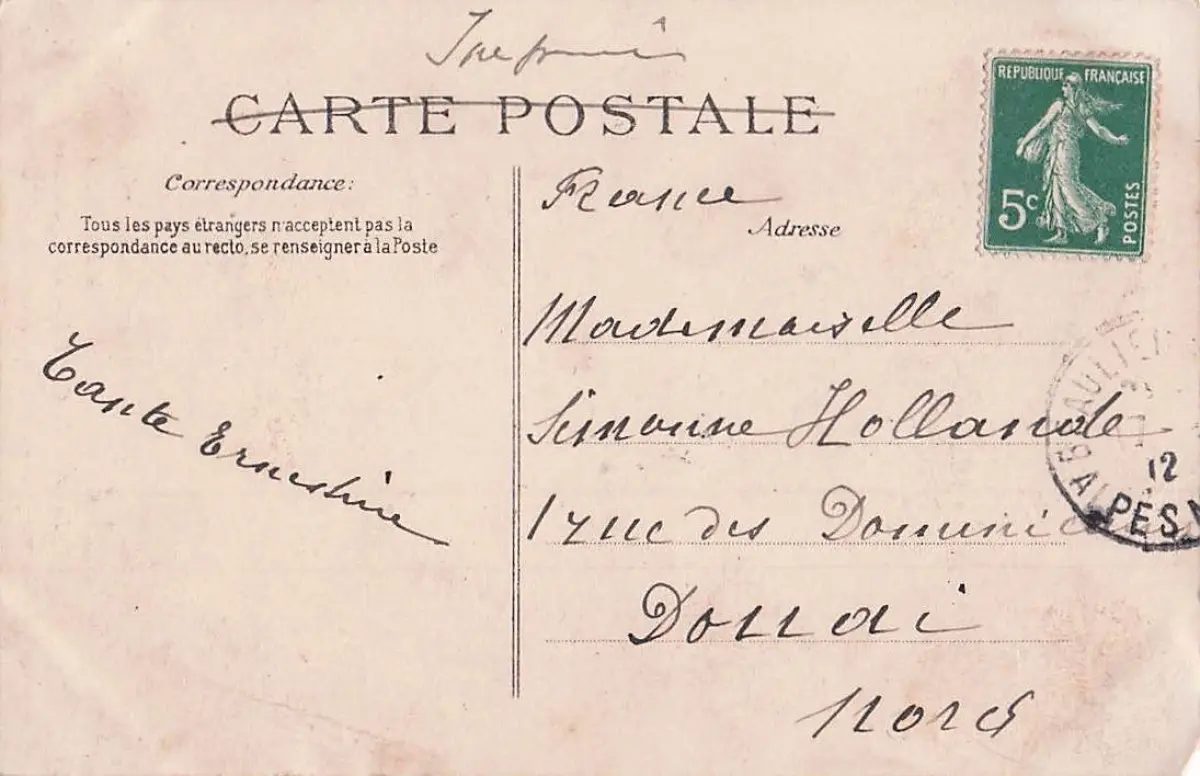 Imprimé
CARTE POSTALE
REPUBLIQUE FRANÇAISE
5c
POSTES
Correspondance:
Tous les pays étrangers n'acceptent pas la
correspondance au recto, se renseigner à la Poste
France
Adresse
Mademoiselle
Simonne Hollande
1 rue des
Douai
Nord
Tante Ernestine
12